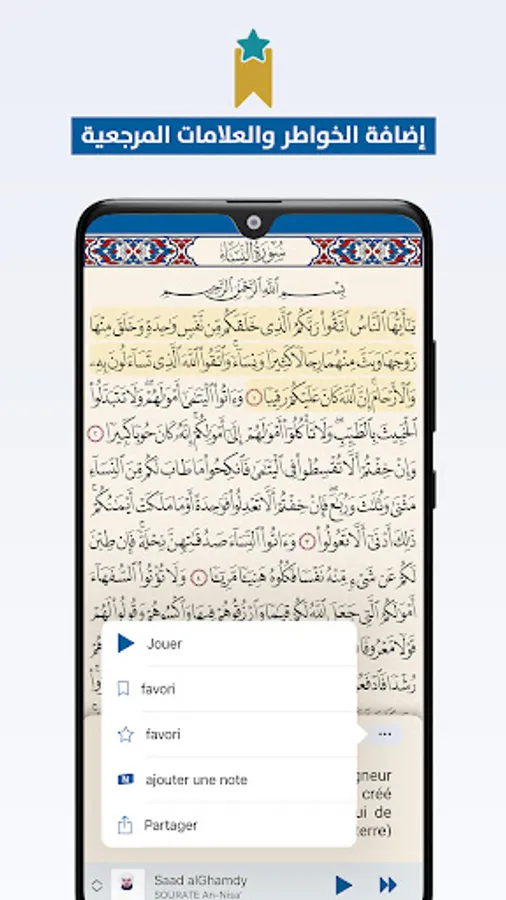 إضافة الخواطر والعلامات المرجعية
سُورَةُ النِّسَاءِ
بِسْمِ اللَّهِ الرَّحْمَٰنِ الرَّحِيمِ
يَٰٓأَيُّهَا النَّاسُ اتَّقُوا رَبَّكُمُ الَّذِي خَلَقَكُم مِّن نَّفْسٍ وَٰحِدَةٍ وَخَلَقَ مِنْهَا
زَوْجَهَا وَبَثَّ مِنْهُمَا رِجَالًا كَثِيرًا وَنِسَآءً وَاتَّقُوا اللَّهَ الَّذِي تَسَآءَلُونَ بِهِۦ
وَالْأَرْحَامَ إِنَّ اللَّهَ كَانَ عَلَيْكُمْ رَقِيبًا ١ وَءَاتُوا الْيَتَٰمَىٰٓ أَمْوَٰلَهُمْ وَلَا تَتَبَدَّلُوا
الْخَبِيثَ بِالطَّيِّبِ وَلَا تَأْكُلُوٓا أَمْوَٰلَهُمْ إِلَىٰٓ أَمْوَٰلِكُمْ إِنَّهُۥ كَانَ حُوبًا كَبِيرًا ٢
وَإِنْ خِفْتُمْ أَلَّا تُقْسِطُوا فِي الْيَتَٰمَىٰ فَانكِحُوا مَا طَابَ لَكُم مِّنَ النِّسَآءِ
مَثْنَىٰ وَثُلَٰثَ وَرُبَٰعَ فَإِنْ خِفْتُمْ أَلَّا تَعْدِلُوا فَوَٰحِدَةً أَوْ مَا مَلَكَتْ أَيْمَٰنُكُمْ
ذَٰلِكَ أَدْنَىٰٓ أَلَّا تَعُولُوا ٣ وَءَاتُوا النِّسَآءَ صَدُقَٰتِهِنَّ نِحْلَةً فَإِن طِبْنَ
لَكُمْ عَن شَيْءٍ مِّنْهُ نَفْسًا فَكُلُوهُ هَنِيٓـًٔا مَّرِيٓـًٔا ٤ وَلَا تُؤْتُوا السُّفَهَآءَ
أَمْوَٰلَكُمُ الَّتِي جَعَلَ اللَّهُ لَكُمْ قِيَٰمًا وَارْزُقُوهُمْ فِيهَا وَاكْسُوهُمْ وَقُولُوا لَهُمْ
قَوْلًا مَّعْرُوفًا
رُشْدًا فَادْفَعُوا
Jouer
favori
favori
ajouter une note
Partager
gneur
créé
ui de
erre)
Saad alGhamdy
SOURATE An-Nisa'